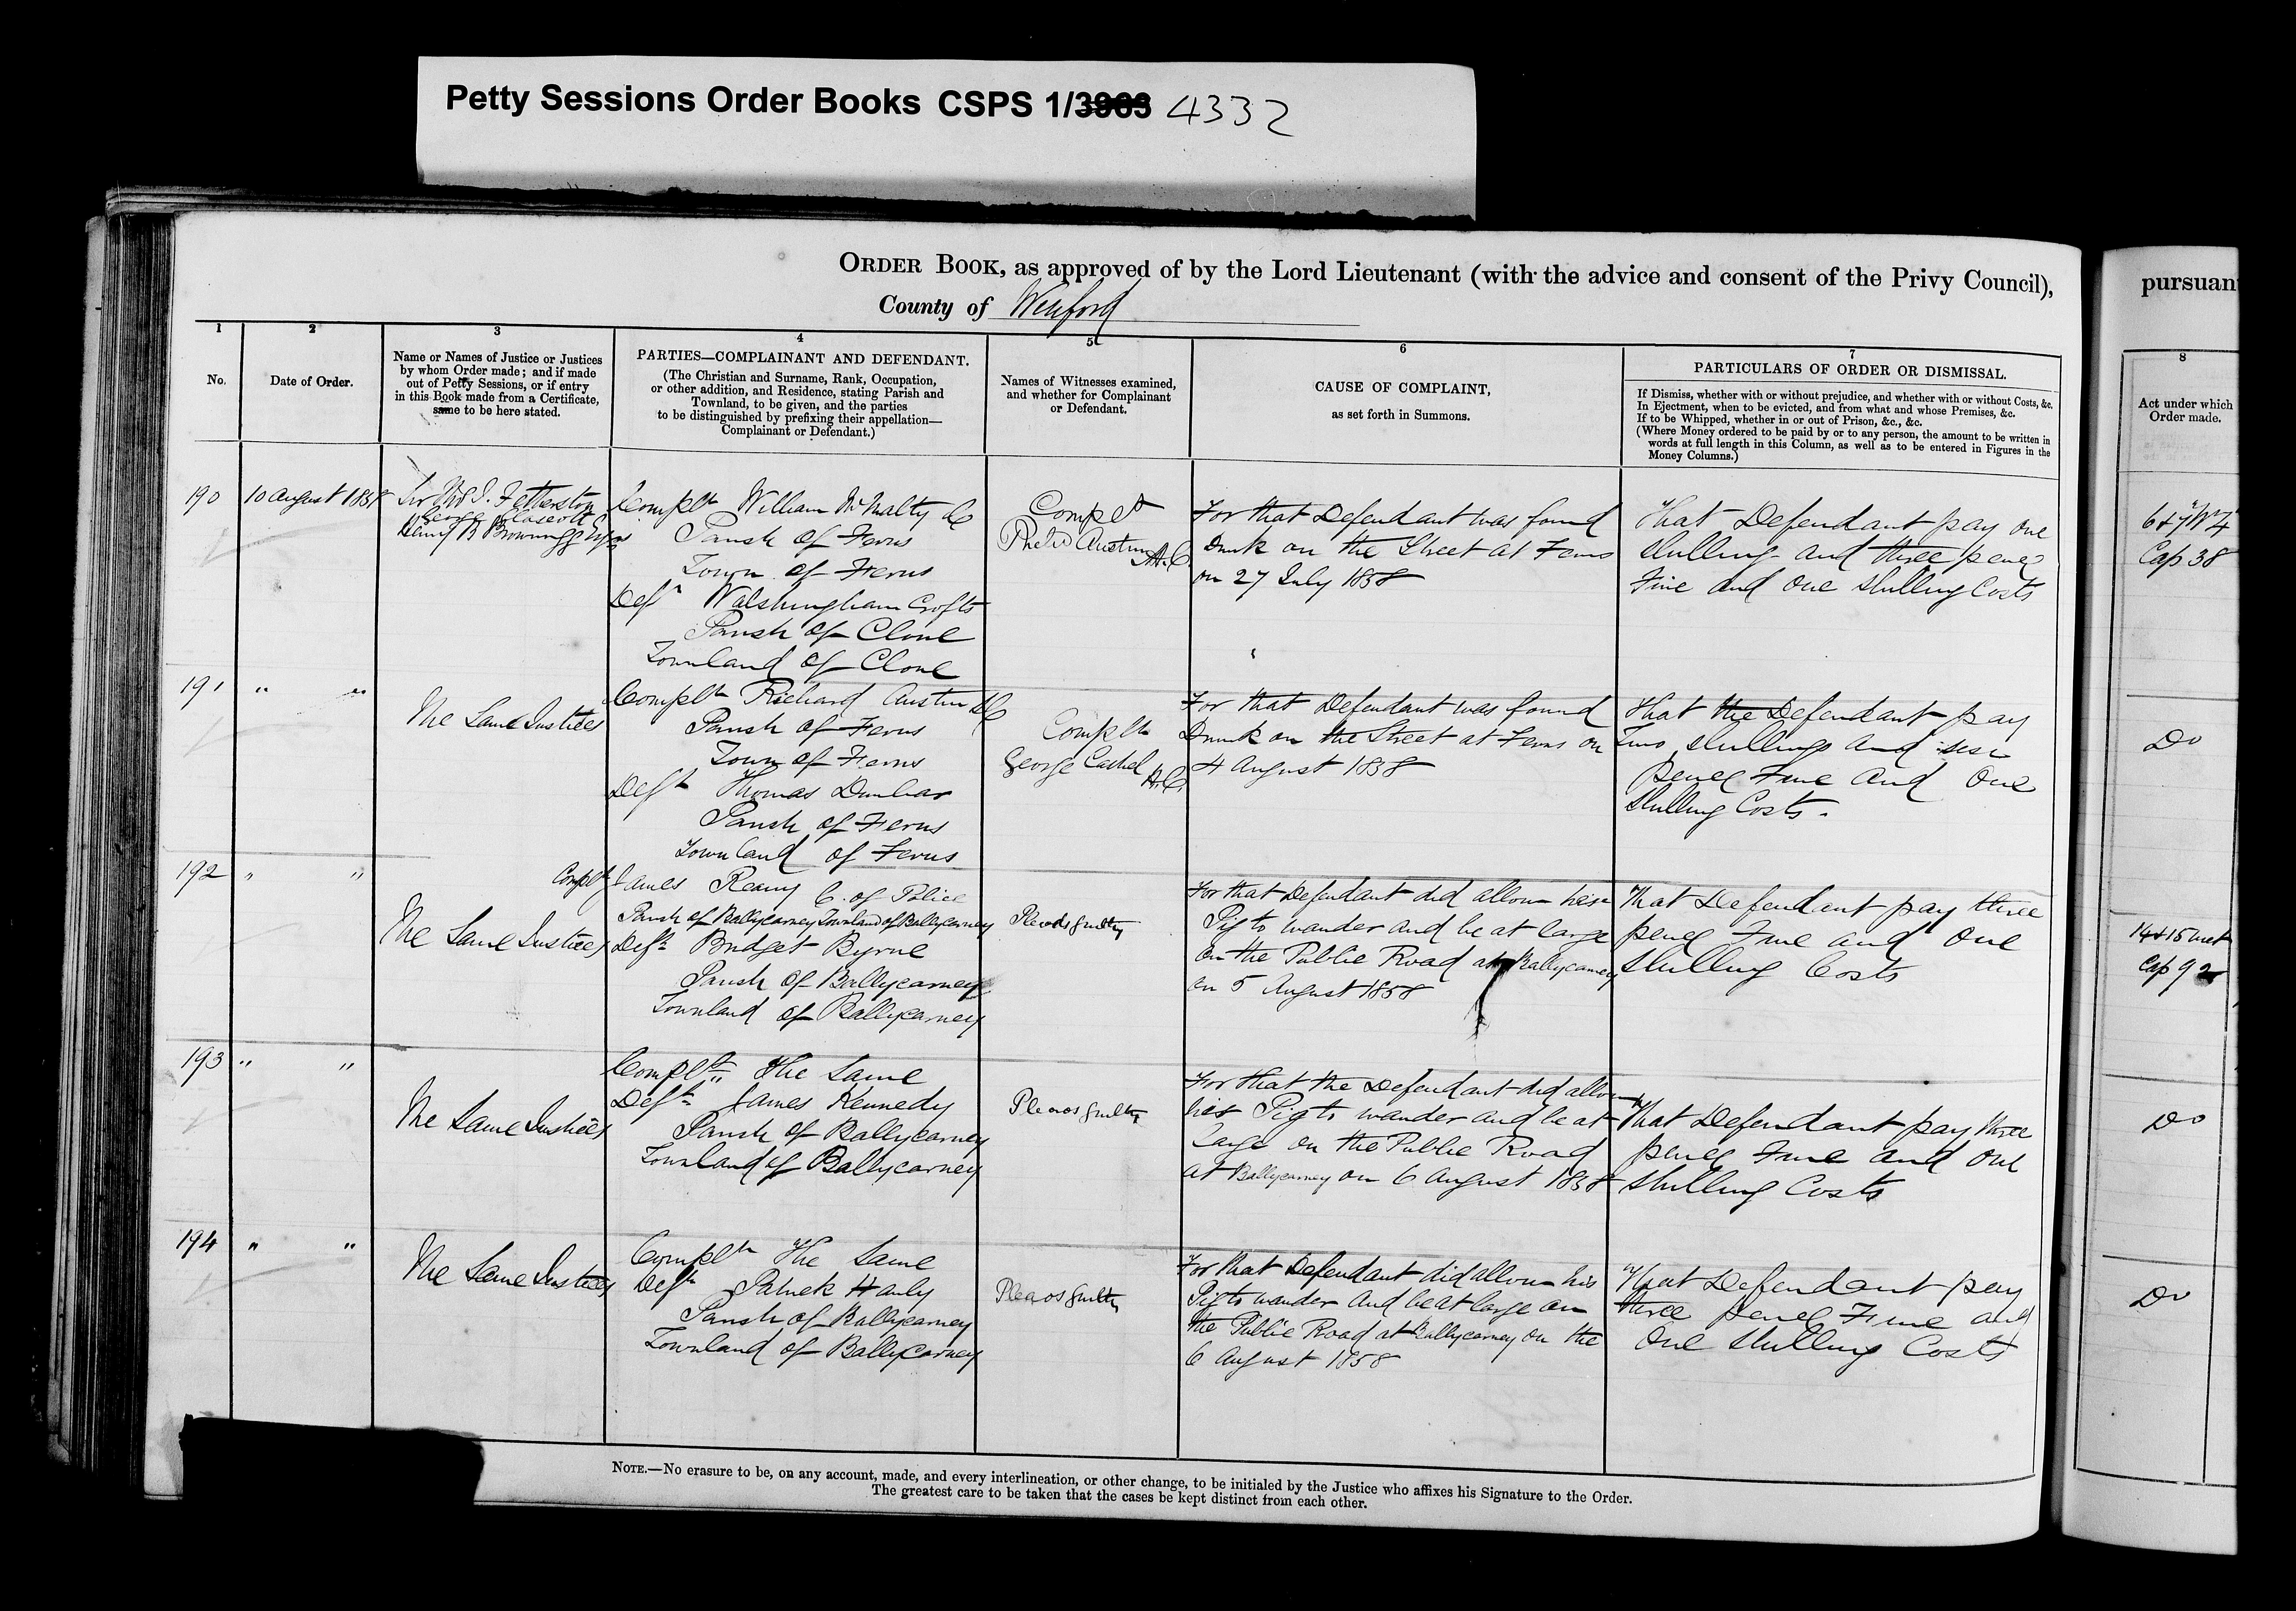 Petty Sessions Order Books CSPS 1/3963 4332
ORDER BOOK, as approved of by the Lord Lieutenant (with the advice and consent of the Privy Council),
County of Wexford
pursuan
1
No.
2
Date of Order.
3
Name or Names of Justice or Justices
by whom Order made; and if made
out of Petty Sessions, or if entry
in this Book made from a Certificate,
same to be here stated.
4
PARTIES—COMPLAINANT AND DEFENDANT.
(The Christian and Surname, Rank, Occupation,
or other addition, and Residence, stating Parish and
Townland, to be given, and the parties
to be distinguished by prefixing their appellation—
Complainant or Defendant.)
5
Names of Witnesses examined,
and whether for Complainant
or Defendant.
6
CAUSE OF COMPLAINT,
as set forth in Summons.
7
PARTICULARS OF ORDER OR DISMISSAL.
If Dismiss, whether with or without prejudice, and whether with or without Costs, &c.
In Ejectment, when to be evicted, and from what and whose Premises, &c.
If to be Whipped, whether in or out of Prison, &c., &c.
(Where Money ordered to be paid by or to any person, the amount to be written in
words at full length in this Column, as well as to be entered in Figures in the
Money Columns.)
8
Act under which
Order made.
190
10 August 1858
Fetherston
Browning
Complt William McNalty
Parish of Ferns
Town of Ferns
Deft Walshingham Crofts
Parish of Clone
Townland of Clone
Complt
Austin
For that Defendant was found
Drunk on the Street at Ferns
on 27 July 1858
That Defendant pay one
shilling and three pence
Fine and one shilling Costs
6 & 7 W 4
Cap 38
191
" "
The Same Justices
Complt Richard Austin
Parish of Ferns
Town of Ferns
Deft Thomas Dunbar
Parish of Ferns
Townland of Ferns
Complt
George Cashel
For that Defendant was found
Drunk on the Street at Ferns on
4 August 1858
That the Defendant pay
Two shillings and six
pence Fine and One
shilling Costs.
Do
192
" "
The Same Justices
Complt James Reamy C. of Police
Parish of Ballycarney Townland of Ballycarney
Deft Bridget Byrne
Parish of Ballycarney
Townland of Ballycarney
Pleads guilty
For that Defendant did allow her
Pig to wander and be at large
on the Public Road at Ballycarney
on 5 August 1858
That Defendant pay three
pence Fine and one
shilling Costs
14 & 15 Vict
Cap 92
193
" "
The Same Justices
Complt The Same
Deft James Kennedy
Parish of Ballycarney
Townland of Ballycarney
Pleads guilty
For that the Defendant did allow
his Pig to wander and be at
large on the Public Road
at Ballycarney on 6 August 1858
That Defendant pay three
pence Fine and one
shilling Costs
Do
194
" "
The Same Justices
Complt The Same
Deft Patrick Hanly
Parish of Ballycarney
Townland of Ballycarney
Pleads guilty
For that Defendant did allow his
Pig to wander and be at large on
the Public Road at Ballycarney on the
6 August 1858
That Defendant pay
three pence Fine and
one shilling Costs
Do
NOTE.—No erasure to be, on any account, made, and every interlineation, or other change, to be initialed by the Justice who affixes his Signature to the Order.
The greatest care to be taken that the cases be kept distinct from each other.